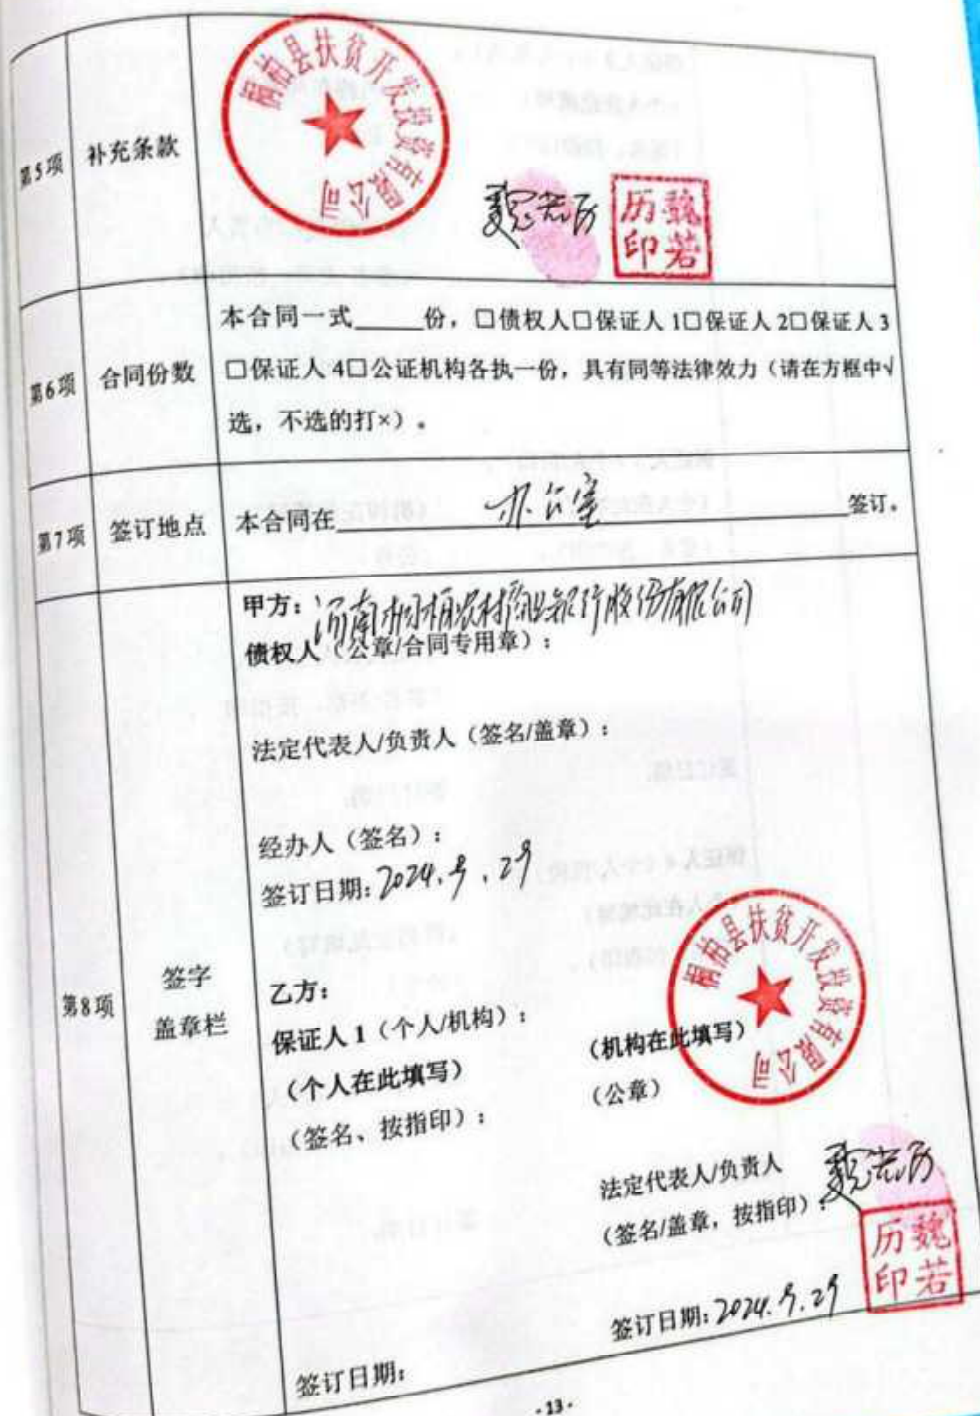 第5项
补充条款
桐柏县扶贫开发投资有限公司
魏若历
魏若历印
第6项
合同份数
本合同一式____份，□债权人□保证人1□保证人2□保证人3
□保证人4□公证机构各执一份，具有同等法律效力（请在方框中√
选，不选的打×）。
第7项
签订地点
本合同在 办公室 签订。
第8项
签字
盖章栏
甲方：河南桐柏农村商业银行股份有限公司
债权人（公章/合同专用章）：
法定代表人/负责人（签名/盖章）：
经办人（签名）：
签订日期：2024.9.29
乙方：
保证人1（个人/机构）：
（个人在此填写）
（签名、按指印）：
签订日期：
（机构在此填写）
（公章）
桐柏县扶贫开发投资有限公司
法定代表人/负责人
（签名/盖章，按指印）：魏若历
魏若历印
签订日期：2024.9.29
- 13 -